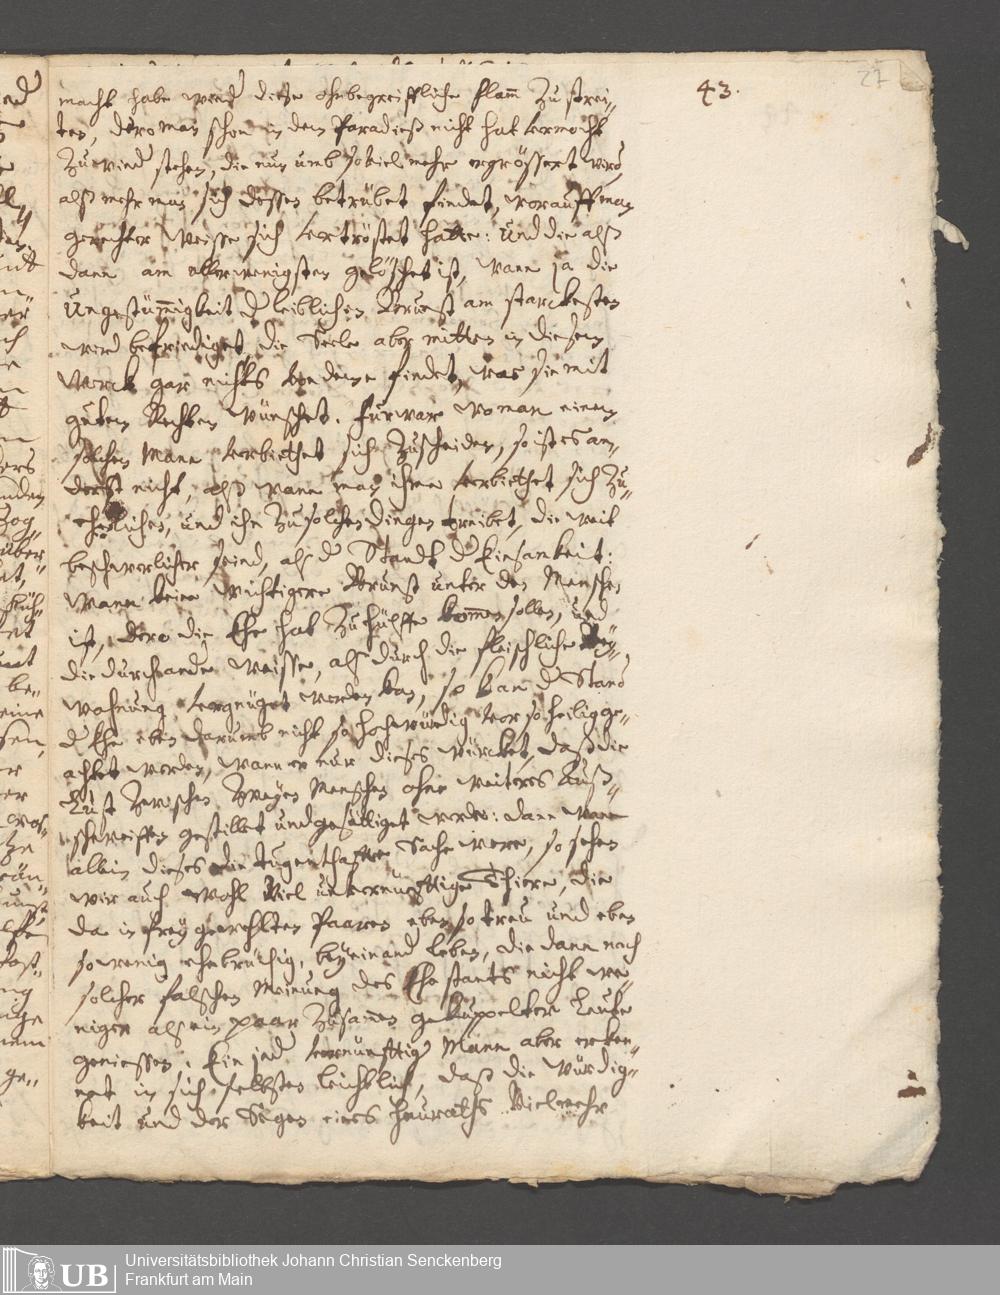 43.
27
macht habe wieder diese ohnbegreiffliche flam̄ zu strei-
ten, dero man schon in dem Paradieß nicht hat vermocht
zu wieder stehen, die nun umb so viel mehr vergrössert wird
alß mehr man sich dessen betrübet findet, worauff man
gerechter weisse sich vertröstet hatte: und die alß
dann am allerwenigsten gelöschet ist, wann ja die
Ungestüm̄igkeit der leiblichen Brunst am starckesten
wird befriediget, die Seele aber mitten in diesem
Werck gar nichts von deme findet, was sie mit
gutem Rechten wünschet. fürwar wo man einem
solchen Mann verbiethet sich zuscheiden, so ist es an-
derst nicht, alß wann man ihme verbiethet sich zu
ehelichen, und ihn zu solchen dingen treibet, die weit
beschwerlicher seind, alß der Standt der Einsamkeit.
Wann keine wichtigere Brunst unter den Menschen
ist, dero die Ehe hat zu hülffe kom̄en sollen, und
die durch andere weisse, alß durch die fleischliche Bey-
wohnung vergnüget werden kan, so kan der Stand
der Ehe eben darumb nicht so hochwürdig vor so heilig ge-
achtet werden, wann er nur dieses würcket, daß die
Lust zwischen zweyen Menschen ohne weiteres Auß-
schweiffen gestillet und gesättiget werde: dann wann
allein dieses die tugenthaffte Sache were, so sehen
wir auch wohl viel unvernünfftige Thiere, die
da in frey gewehlten Paaren eben so treu und eben
so wenig ehebrüchig, bey einander leben, die dann nach
solcher falschen Meinung des Ehestants nicht we-
niger alß ein paar zusam̄en gekuppelter Leuthe
geniessen. Ein jeder vernünfftiger Mann aber erken-
net in sich selbsten leichtlich, daß die Würdig-
keit und der Segen eines Heuraths vielmehr
Universitätsbibliothek Johann Christian Senckenberg
Frankfurt am Main
UB